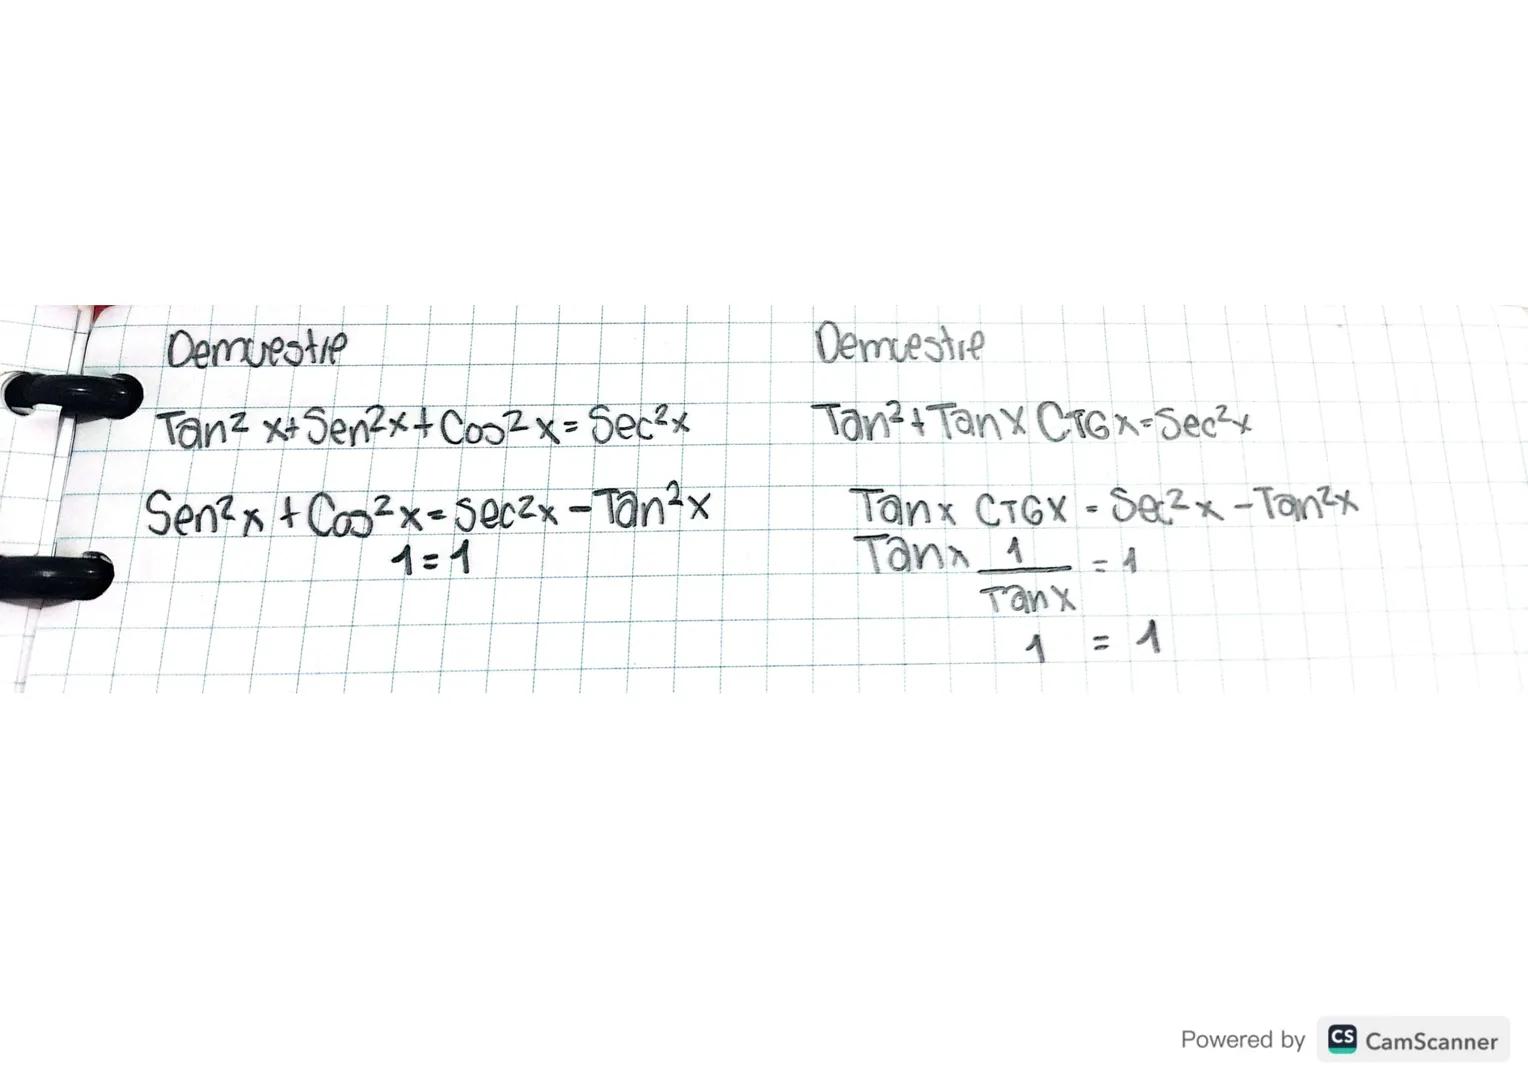 Demuestre
Tan² x + Sen²x + Cos²x = Sec²x
Sen²x + Cos²x = sec²x - Tan²x
1 = 1
Demuestre
Tan² + Tanx CTGx = Sec²x
Tanx CTGX = Sec²x - Tan²x
Tanx 1/Tanx = 1
1 = 1
Powered by CS CamScanner